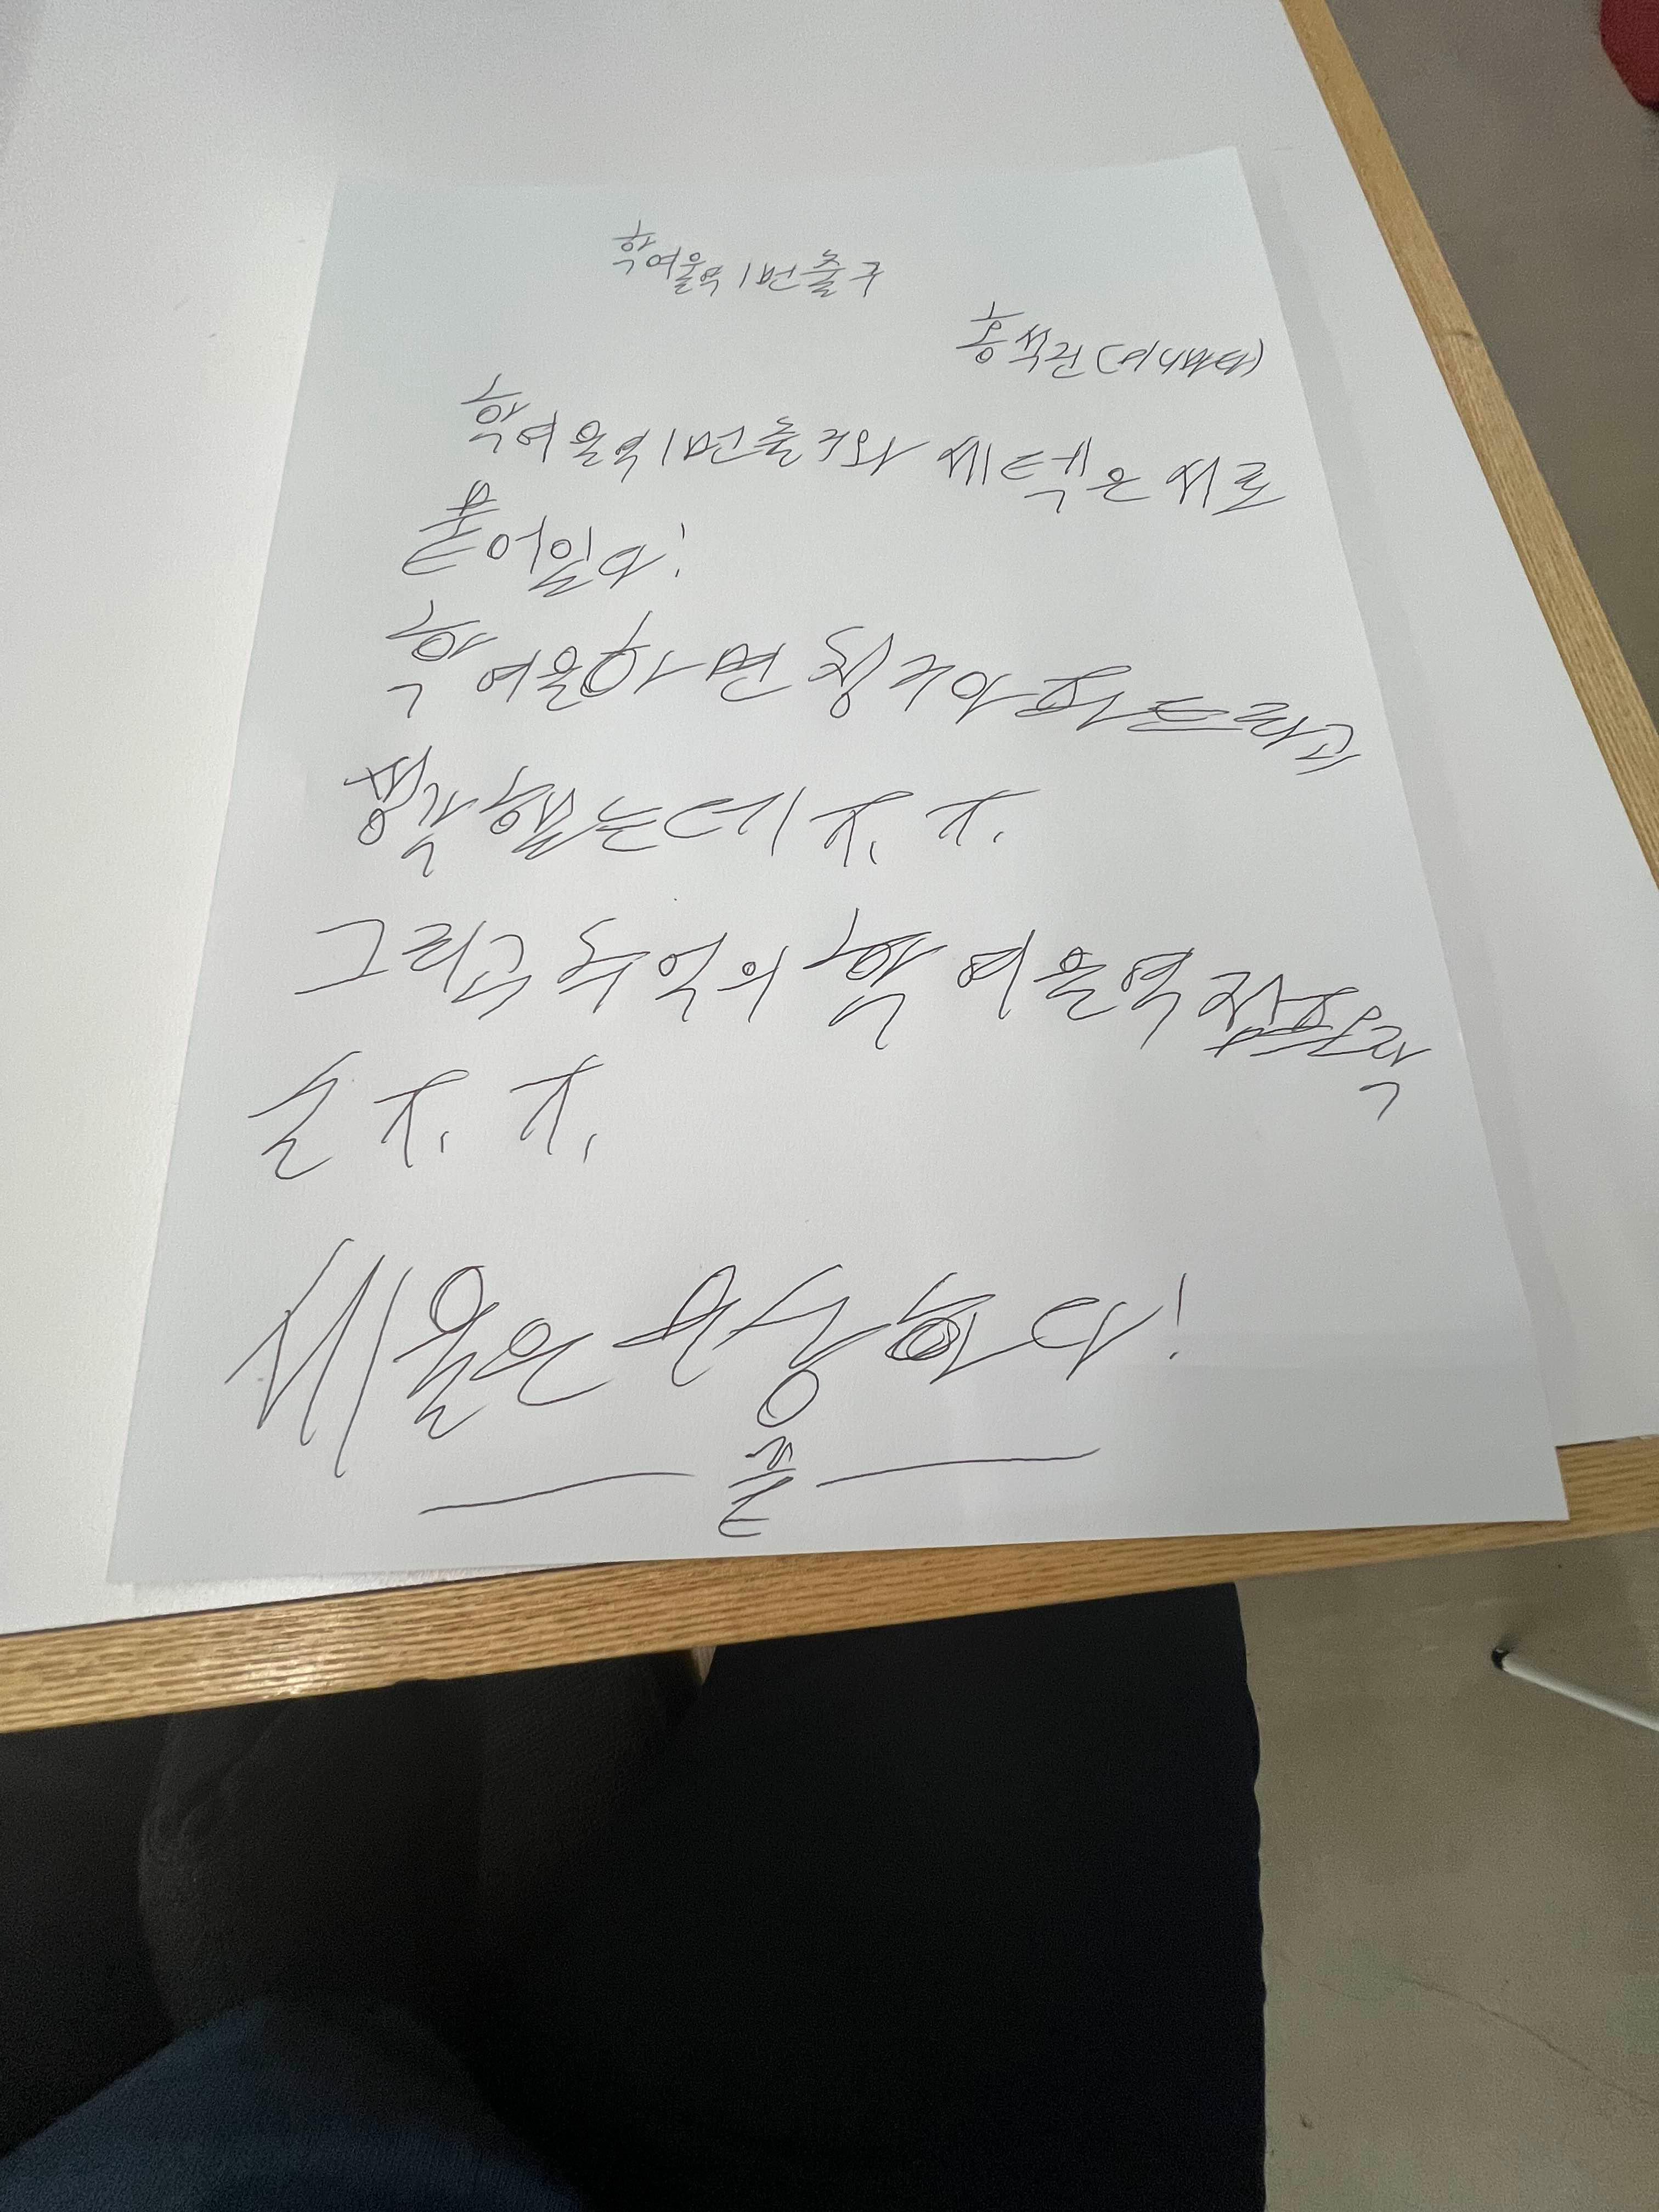 학여울역 1번출구
홍석권 (어나더)
학여울역 1번출구와 세텍은 서로
붙어있다!
학여울하면 칭키아파트라고
생각했는데 ㅈ.ㅈ.
그리고 추억의 학여울역 점프
손 ㅈ.ㅈ.
세월은 무상하다!
끝